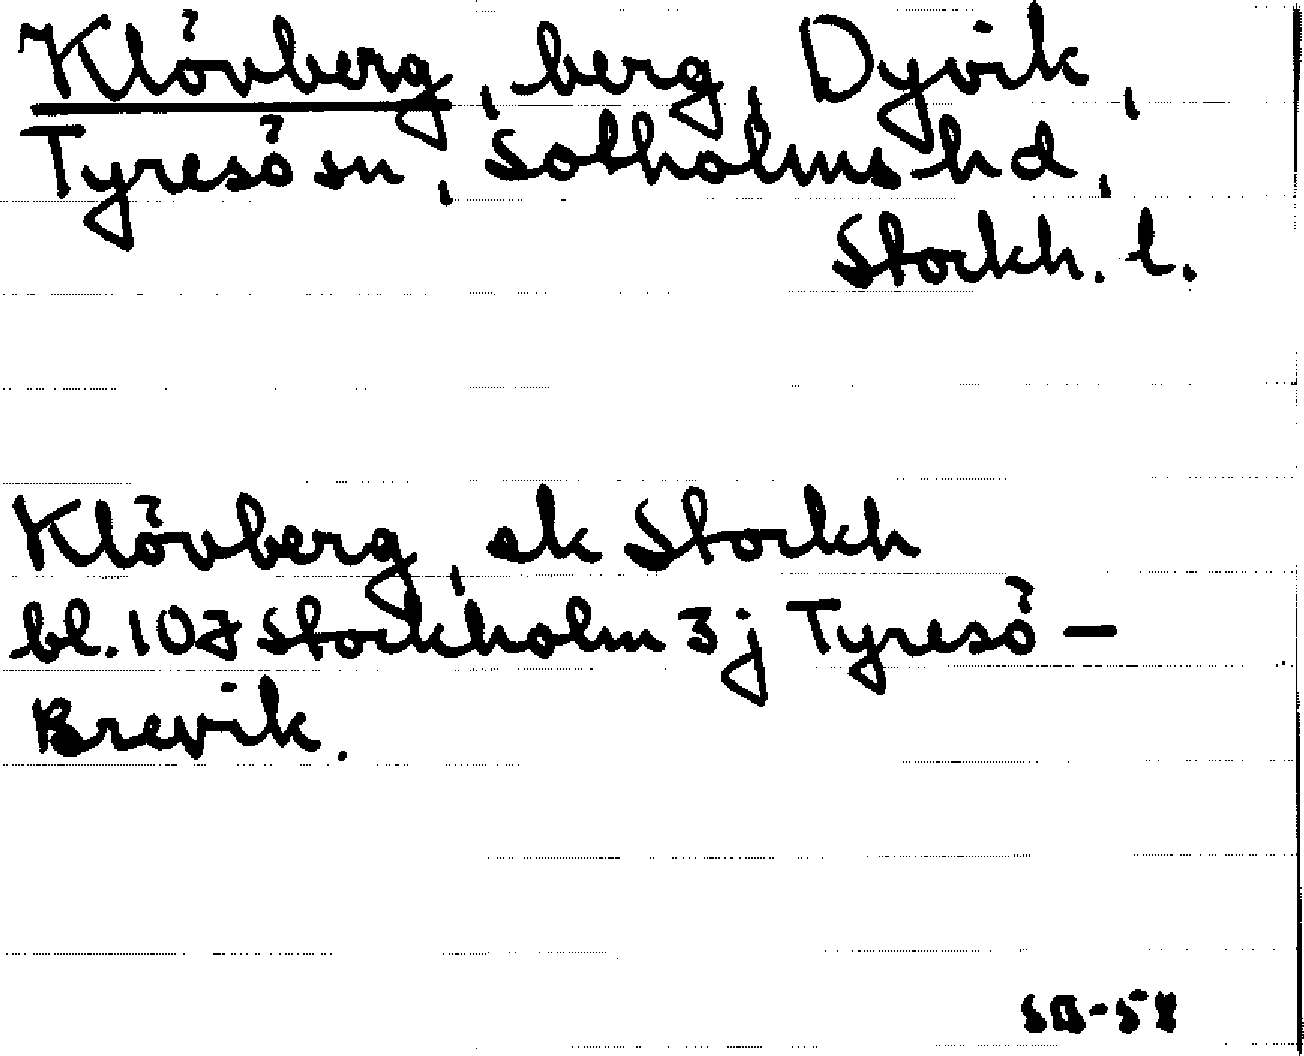 Klövberg, berg, Dyvik,
Tyresö sn, Sotholms hd,
Stockh. l.
Klövberg, ek Stockh
bl. 107 Stockholm 3j Tyresö –
Brevik.